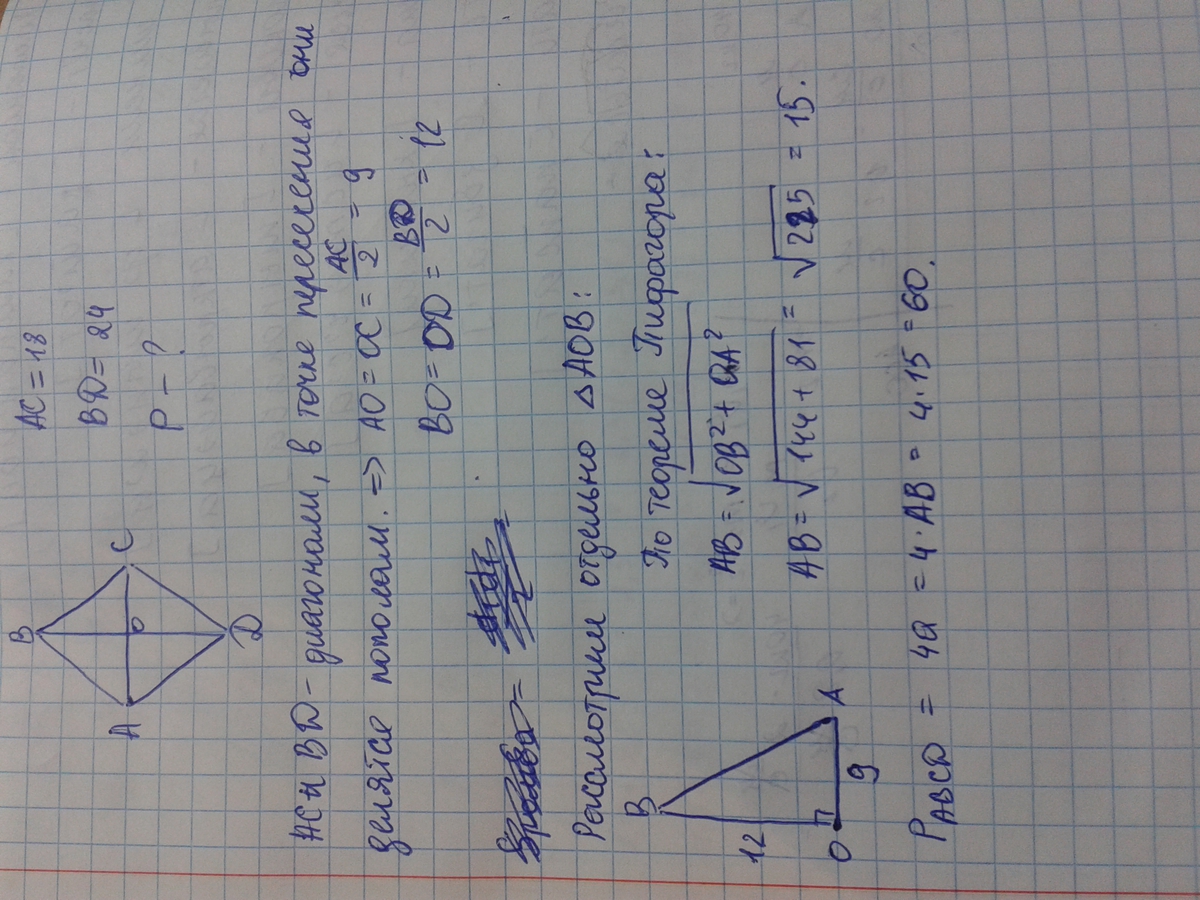 B
A
C
O
D
AC = 18
BD = 24
P - ?
AC и BD - диагонали, в точке пересечения они
делятся пополам. => AO = OC = AC/2 = 9
BO = OD = BD/2 = 12
Рассмотрим отдельно △AOB:
По теореме Пифагора:
AB = √OB² + OA²
AB = √144 + 81 = √225 = 15.
B
12
O
9
A
P ABCD = 4a = 4 · AB = 4 · 15 = 60.